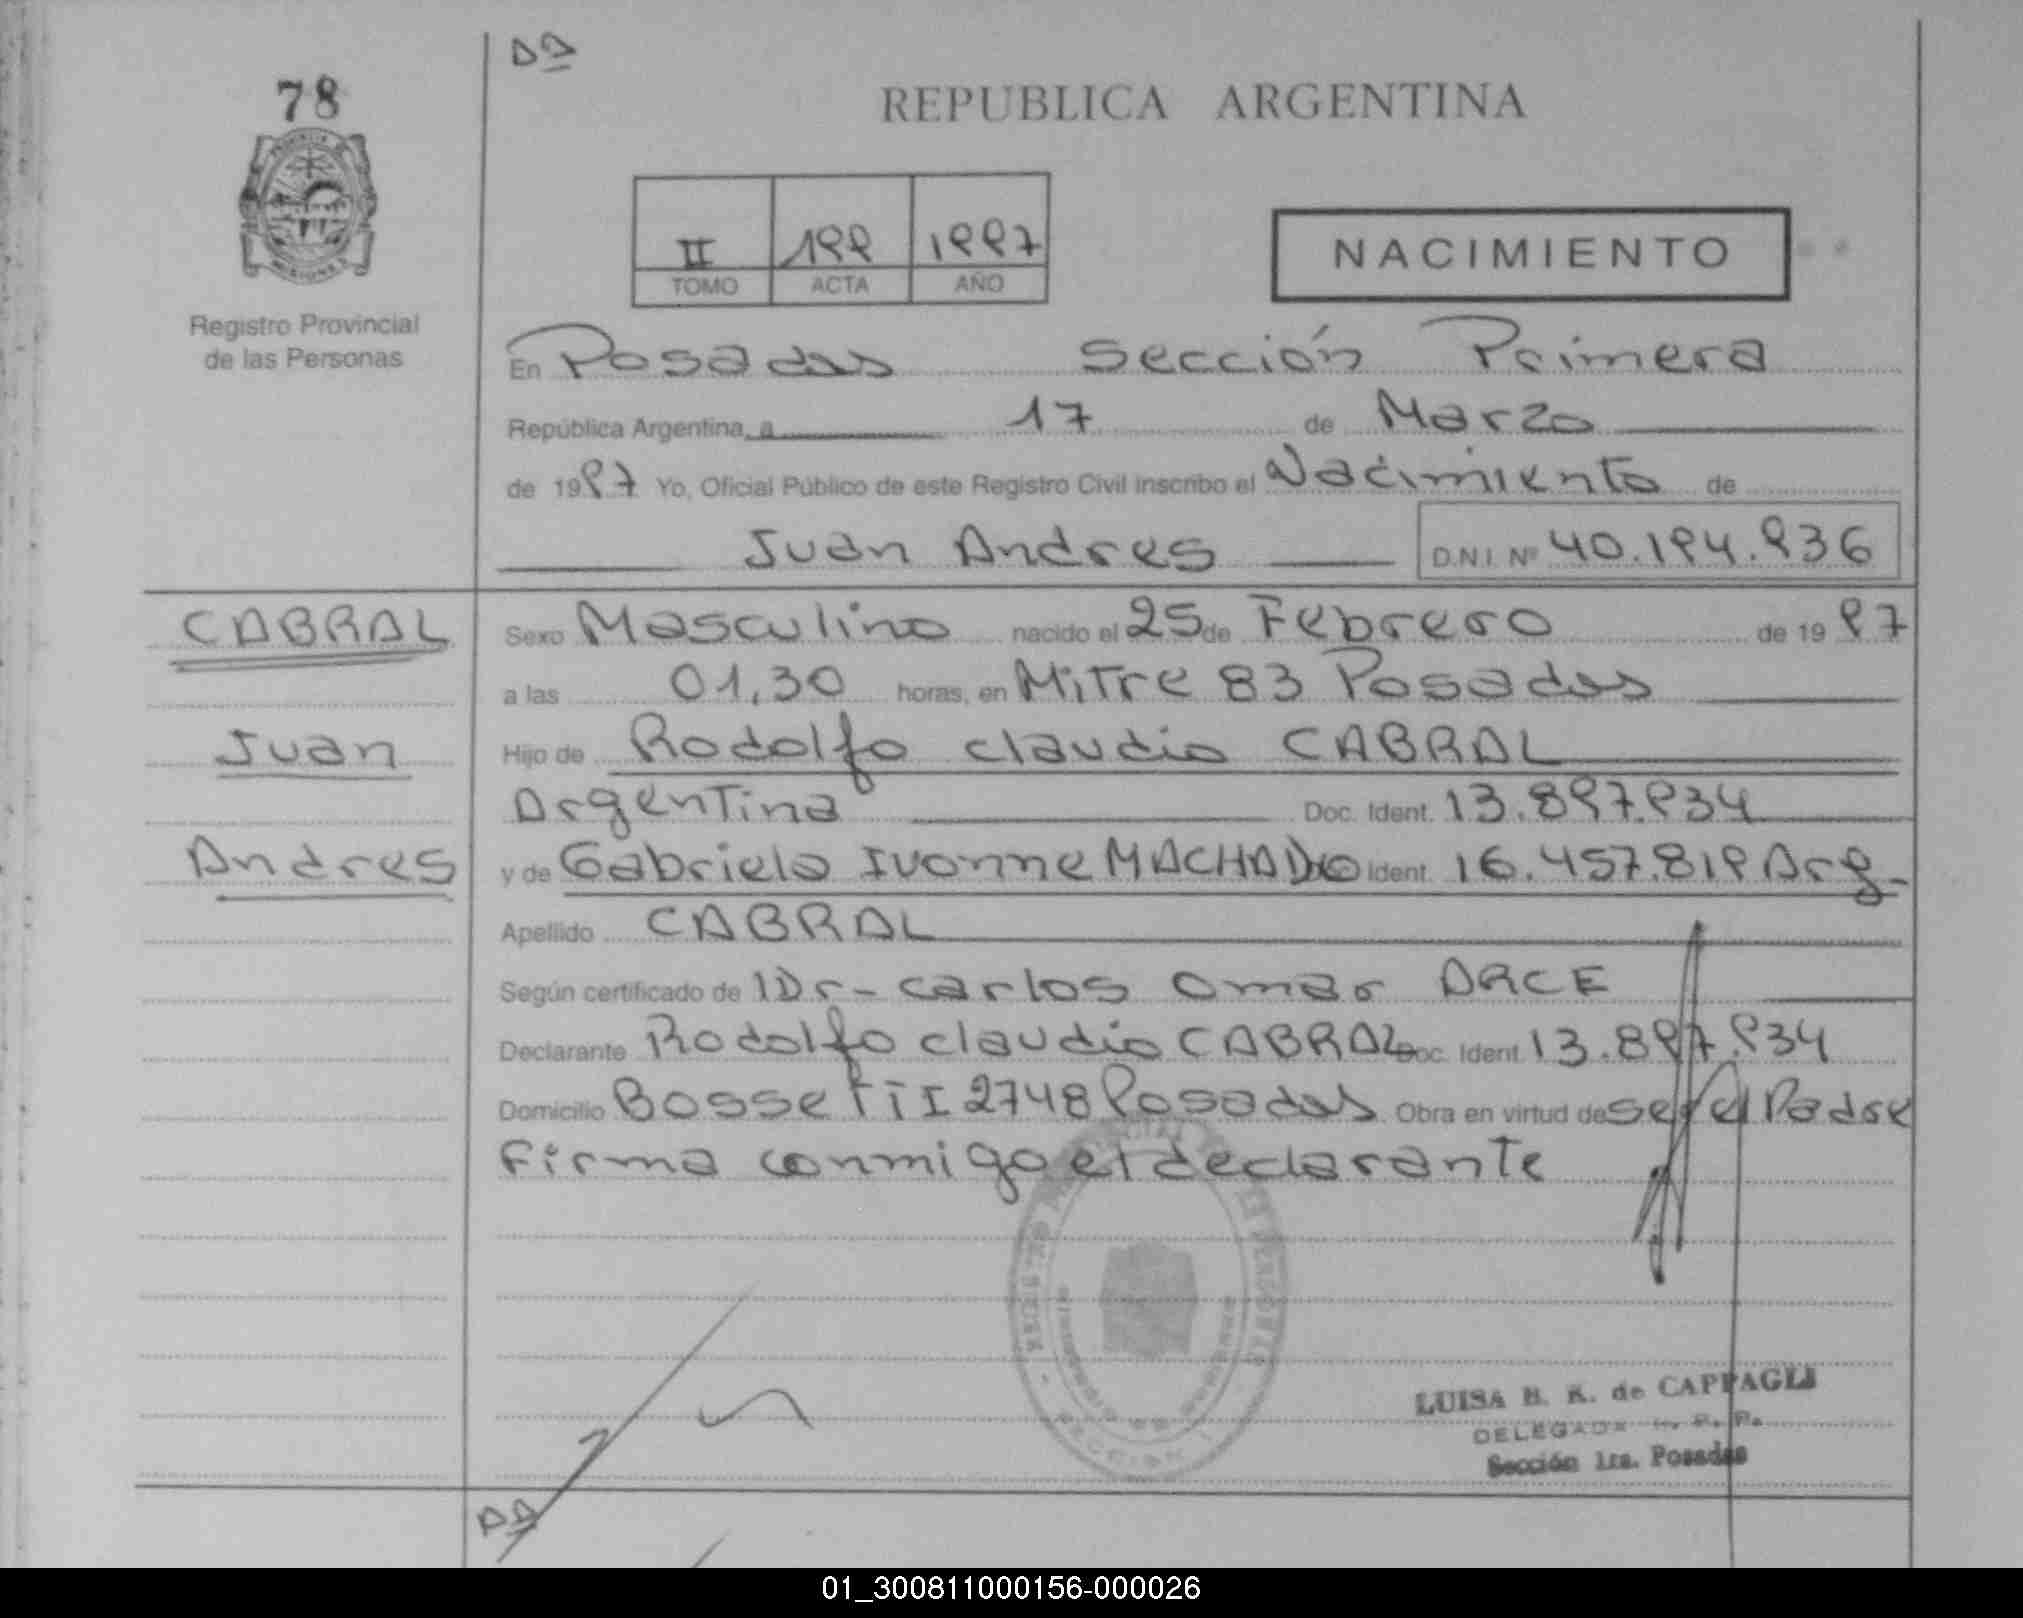 DA
78
REPUBLICA ARGENTINA
II 199 1997
TOMO ACTA AÑO
NACIMIENTO
PROVINCIA DE
MISIONES
Registro Provincial
de las Personas
En Posadas Sección Primera
República Argentina, a 17 de Marzo
de 1997 Yo, Oficial Público de este Registro Civil inscribo el Nacimiento de
Juan Andres D.N.I. Nº 40.194.936
CABRAL
Juan
Andres
Sexo Masculino nacido el 25 de Febrero de 1997
a las 01,30 horas, en Mitre 83 Posadas
Hijo de Rodolfo Claudio CABRAL
Argentina Doc. Ident. 13.897.934
y de Gabriela Ivonne MACHADO Ident. 16.457.819 Arg-
Apellido CABRAL
Según certificado de Dr- Carlos Omar ARCE
Declarante Rodolfo Claudio CABRAL Doc. Ident. 13.897.934
Domicilio BosseTTI 2748 Posadas Obra en virtud de ser el Padre
Firma conmigo el declarante
LUISA H. K. de CAPPAGLI
DELEGADA R. P. P.
Sección 1ra. Posadas
01_300811000156-000026